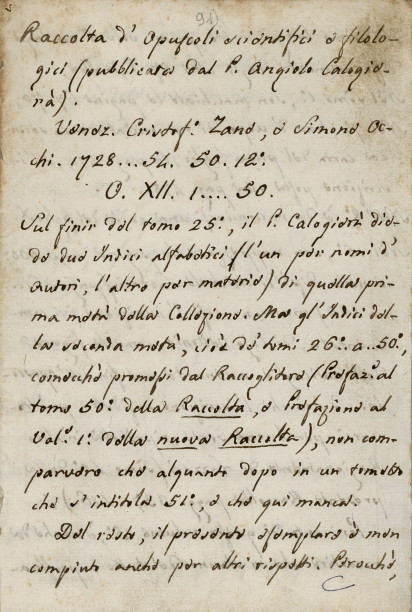 91)
Raccolta d'Opuscoli scientifici e filolo-
gici (pubblicata dal P. Angiolo Calogie-
rà).
Venez. Cristof.º Zane, e Simone Oc-
chi. 1728...54. 50. 12º.
O. XII. 1....50.
Sul finir del tomo 25º, il P. Calogierà die-
de due Indici alfabetici (l'un per nomi d'
autori, l'altro per materie) di quella pri-
ma metà della Collezione. Ma gl'Indici del-
la seconda metà, cioè de' tomi 26º..a..50º,
comecchè promessi dal Raccoglitore (Prefaz.e al
tomo 50º della Raccolta, e Prefazione al
Vol.e 1º della nuova Raccolta), non com-
parvero che alquanto dopo in un tometto
che s'intitola 51º, e che qui manca.
Del resto, il presente esemplare è men
compiuto anche per altri rispetti. Perocchè,